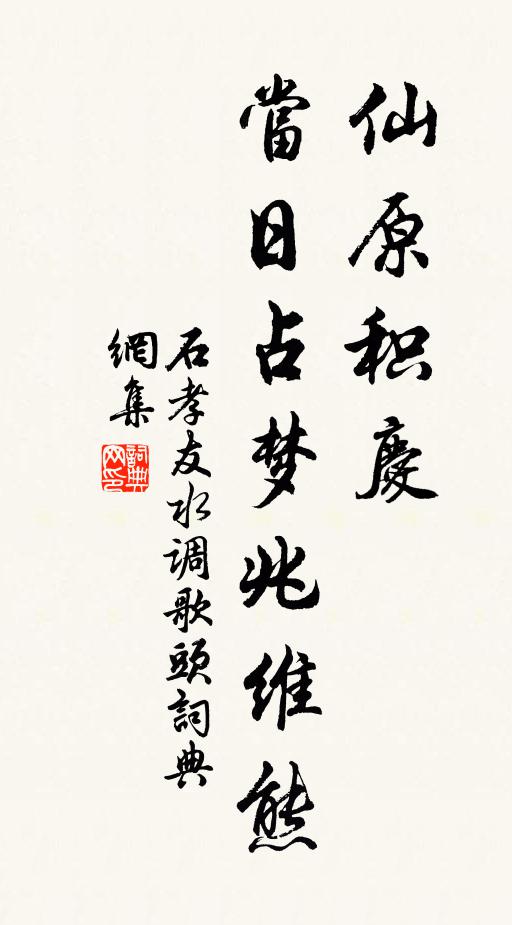 仙原积慶
當日占梦兆维熊
石孝友水调歌頭詞典
網集
詞典
网印